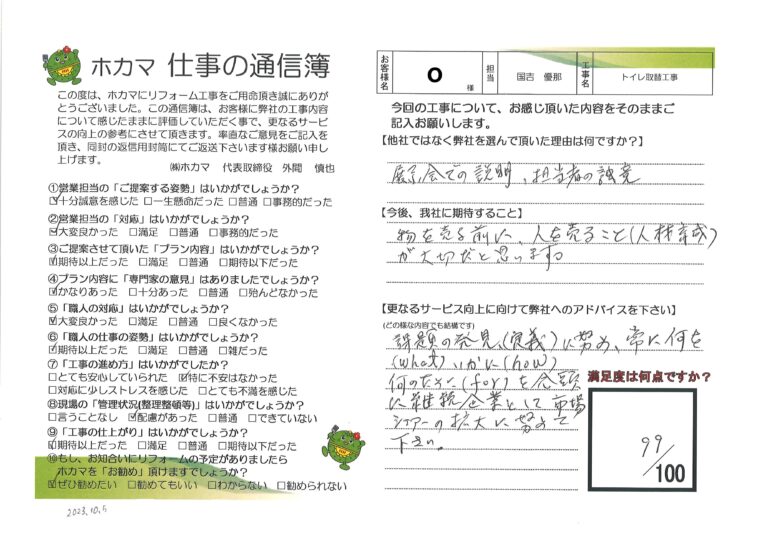 ホカマ 仕事の通信簿
この度は、ホカマにリフォーム工事をご用命頂き誠にありが
とうございました。この通信簿は、お客様に弊社の工事内容
について感じたままに評価していただく事で、更なるサービ
スの向上の参考にさせて頂きます。率直なご意見をご記入を
頂き、同封の返信用封筒にてご返送下さいます様お願い申し
上げます。
㈱ホカマ 代表取締役 外間 慎也
①営業担当の「ご提案する姿勢」はいかがでしょうか?
☑十分誠意を感じた □一生懸命だった □普通 □事務的だった
②営業担当の「対応」はいかがでしょうか?
☑大変良かった □満足 □普通 □事務的だった
③ご提案させて頂いた「プラン内容」はいかがでしょうか?
☑期待以上だった □満足 □普通 □期待以下だった
④プラン内容に「専門家の意見」はありましたでしょうか?
☑かなりあった □十分あった □普通 □殆んどなかった
⑤「職人の対応」はいかがでしょうか?
☑大変良かった □満足 □普通 □良くなかった
⑥「職人の仕事の姿勢」はいかがでしょうか?
☑期待以上だった □満足 □普通 □雑だった
⑦「工事の進め方」はいかがでしたか?
□とても安心していられた ☑特に不安はなかった
□対応に少しストレスを感じた □とても不満を感じた
⑧現場の「管理状況(整理整頓等)」はいかがでしょうか?
□言うことなし ☑配慮があった □普通 □できていない
⑨「工事の仕上がり」はいかがでしょうか?
☑期待以上だった □満足 □普通 □期待以下だった
⑩もし、お知合いにリフォームの予定がありましたら
ホカマを「お勧め」頂けますでしょうか?
☑ぜひ勧めたい □勧めてもいい □わからない □勧められない
2023.10.5
お客様名 O 様 担当 国吉 優那 工事名 トイレ取替工事
今回の工事について、お感じ頂いた内容をそのままご
記入お願いします。
【他社ではなく弊社を選んで頂いた理由は何ですか?】
展示会での説明、担当者の誠意
【今後、我社に期待すること】
物を売る前に、人を売ること(人材育成)
が大切だと思います。
【更なるサービス向上に向けて弊社へのアドバイスを下さい】
(どの様な内容でも結構です)
課題の発見、(定義)に努め、常に何を
(what)、いかに(how)
何のために(for)を念頭
に継続企業として市場
シェアーの拡大に努めて
下さい。
満足度は何点ですか?
99/100